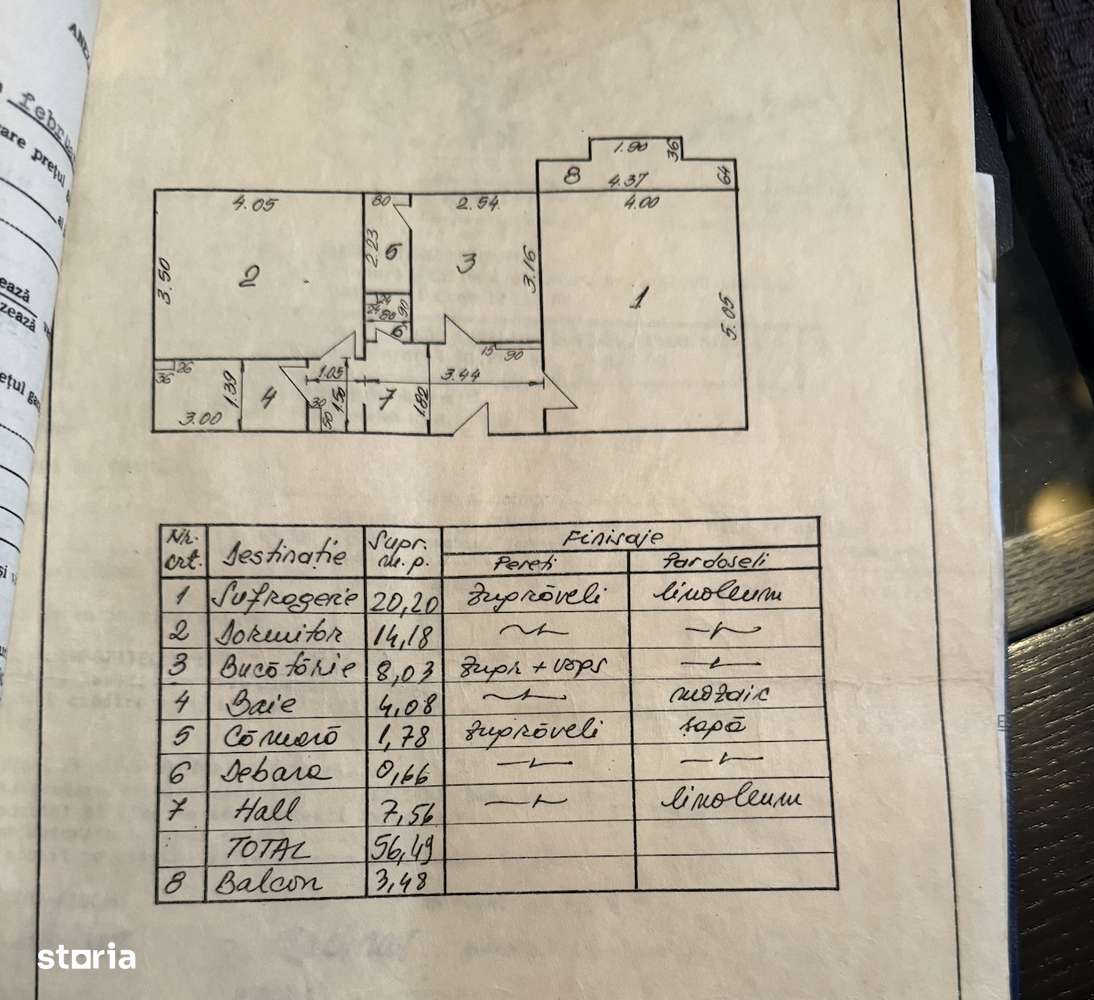 Februa
are prețul
ează
zează
ețul
1.90
36
8
4.37
64
4.05
80
2.54
4.00
3.50
2
2.23
5
3
3.16
1
5.05
24
80
90
6
15
90
36
26
1.39
4
1.05
3.44
3.00
30
50
1.50
7
1.82
Nr. crt.
Destinație
Supr. m.p.
Finisaje
Pereti
Pardoseli
1 Sufragerie 20,20 zugrăveli linoleum
2 Dormitor 14,18
3 Bucătărie 8,03 zugr + vops
4 Baie 4,08 mozaic
5 Cămară 1,78 zugrăveli șapă
6 Debara 0,66
7 Hall 7,56 linoleum
TOTAL 56,49
8 Balcon 3,48
storia